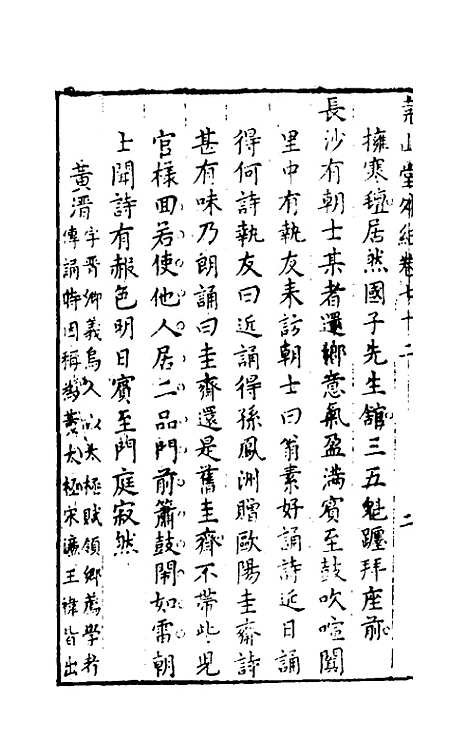 堯山堂外紀卷七十二 二
擁寒氊居然國子先生舘三五魁躔拜座前
長沙有朝士某者還鄉意氣盈滿賓至鼓吹喧闐
里中有執友来訪朝士曰翁素好誦詩近日誦
得何詩執友曰近誦得孫鳳洲贈歐陽圭齋詩
甚有味乃朗誦曰圭齋還是舊圭齋不帶些兒
官樣囬若使他人居二品門前簫鼓閙如雷朝
士聞詩有赧色明日賓至門庭寂然
黄溍字晋卿義烏人以太極賦領鄉薦學者
傳誦特因稱為黄太極宋濂王褘皆出